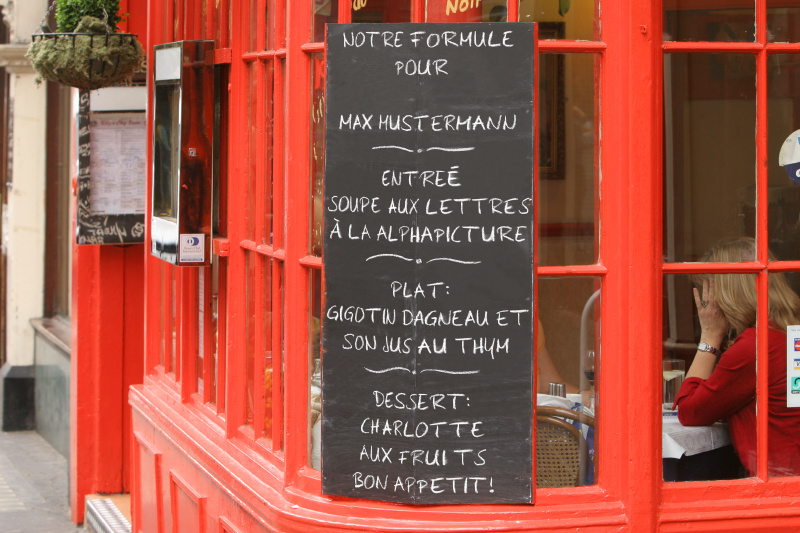 NOTRE FORMULE
POUR
MAX HUSTERMANN
ENTREÉ
SOUPE AUX LETTRES
À LA ALPHAPICTURE
PLAT:
GIGOTIN DAGNEAU ET
SON JUS AU THYM
DESSERT:
CHARLOTTE
AUX FRUITS
BON APPETIT!